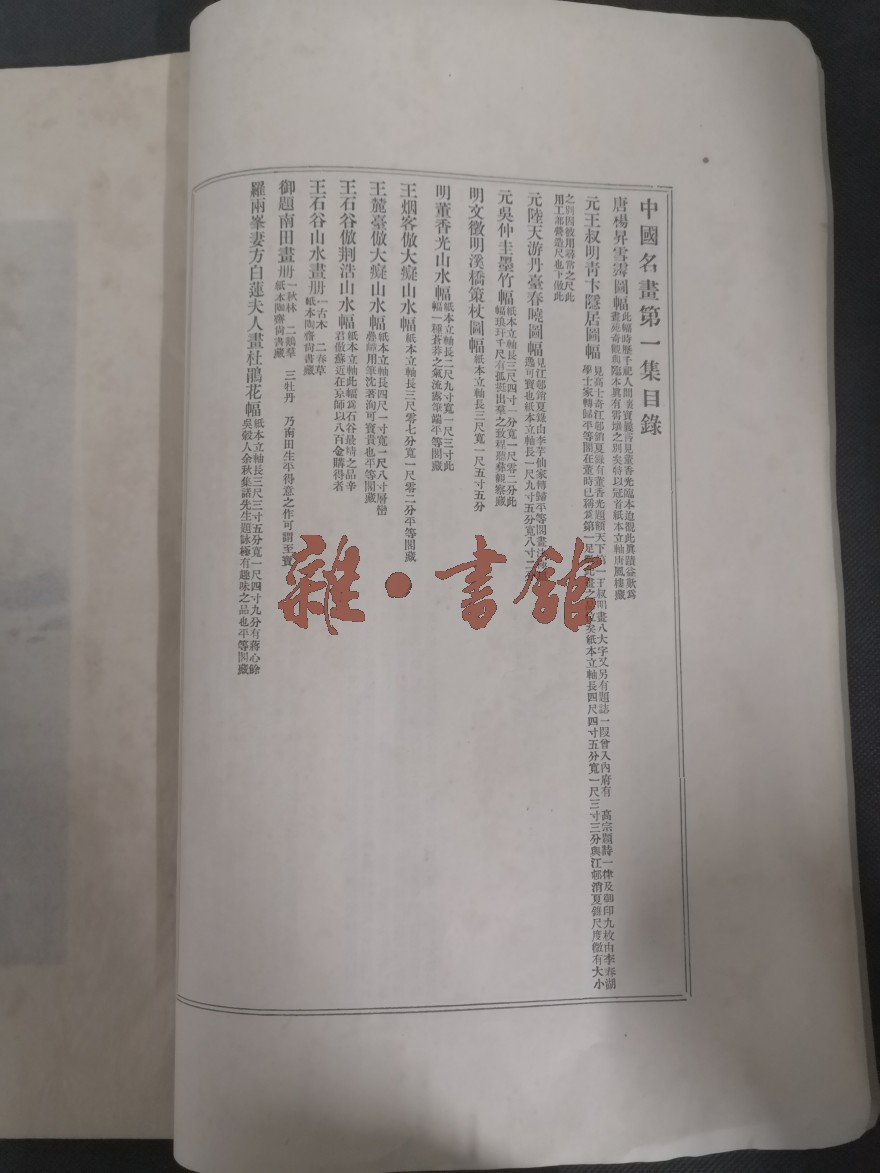 中國名畫第一集目錄
唐楊昇雪霽圖幅
元王叔明青卞隱居圖幅
見高士奇江邨銷夏錄有董香光題額天下第一王叔明畫八大字又另有題誌一段曾入內府有　高宗題詩一律及御印九枚由李春湖
學士家轉歸平等閣在董時已稱爲第一
紙本立軸長四尺四寸五分寬一尺三寸三分與江邨消夏錄尺度微有大小
之別因彼用尋常之尺此
用工部營造尺也下倣此
元陸天游丹臺春曉圖幅
見江邨銷夏錄由李芋仙家轉歸平等閣
逸可寶也紙本立軸長一尺九寸五分寬八寸二
元吳仲圭墨竹幅
紙本立軸長三尺四寸一分寬一尺零二分此
幅琅玕千尺有孤挺出羣之致程聽彝觀察藏
明文徵明溪橋策杖圖幅
紙本立軸長三尺寬一尺五寸五分
明董香光山水幅
紙本立軸長二尺九寸寬一尺三寸此
幅一種蒼莽之氣流露筆端平等閣藏
王烟客倣大癡山水幅
紙本立軸長三尺零七分寬一尺零二分平等閣藏
王麓臺倣大癡山水幅
紙本立軸長四尺一寸寬一尺八寸層巒
疊嶂用筆沈著洵可寶貴也平等閣藏
王石谷倣荆浩山水幅
紙本立軸此幅爲石谷最精之品辛
君倣蘇近在京師以八百金購得者
王石谷山水畫册
一古木　二春草
紙本陶齋尚書藏
御題南田畫册
一秋林　二鵝羣　三牡丹　乃南田生平得意之作可謂至寶
紙本陶齋尚書藏
羅兩峯妻方白蓮夫人畫杜鵑花幅
紙本立軸長三尺三寸五分寬一尺四寸九分有蔣心餘
吳穀人余秋集諸先生題詠極有趣味之品也平等閣藏
雜·書館